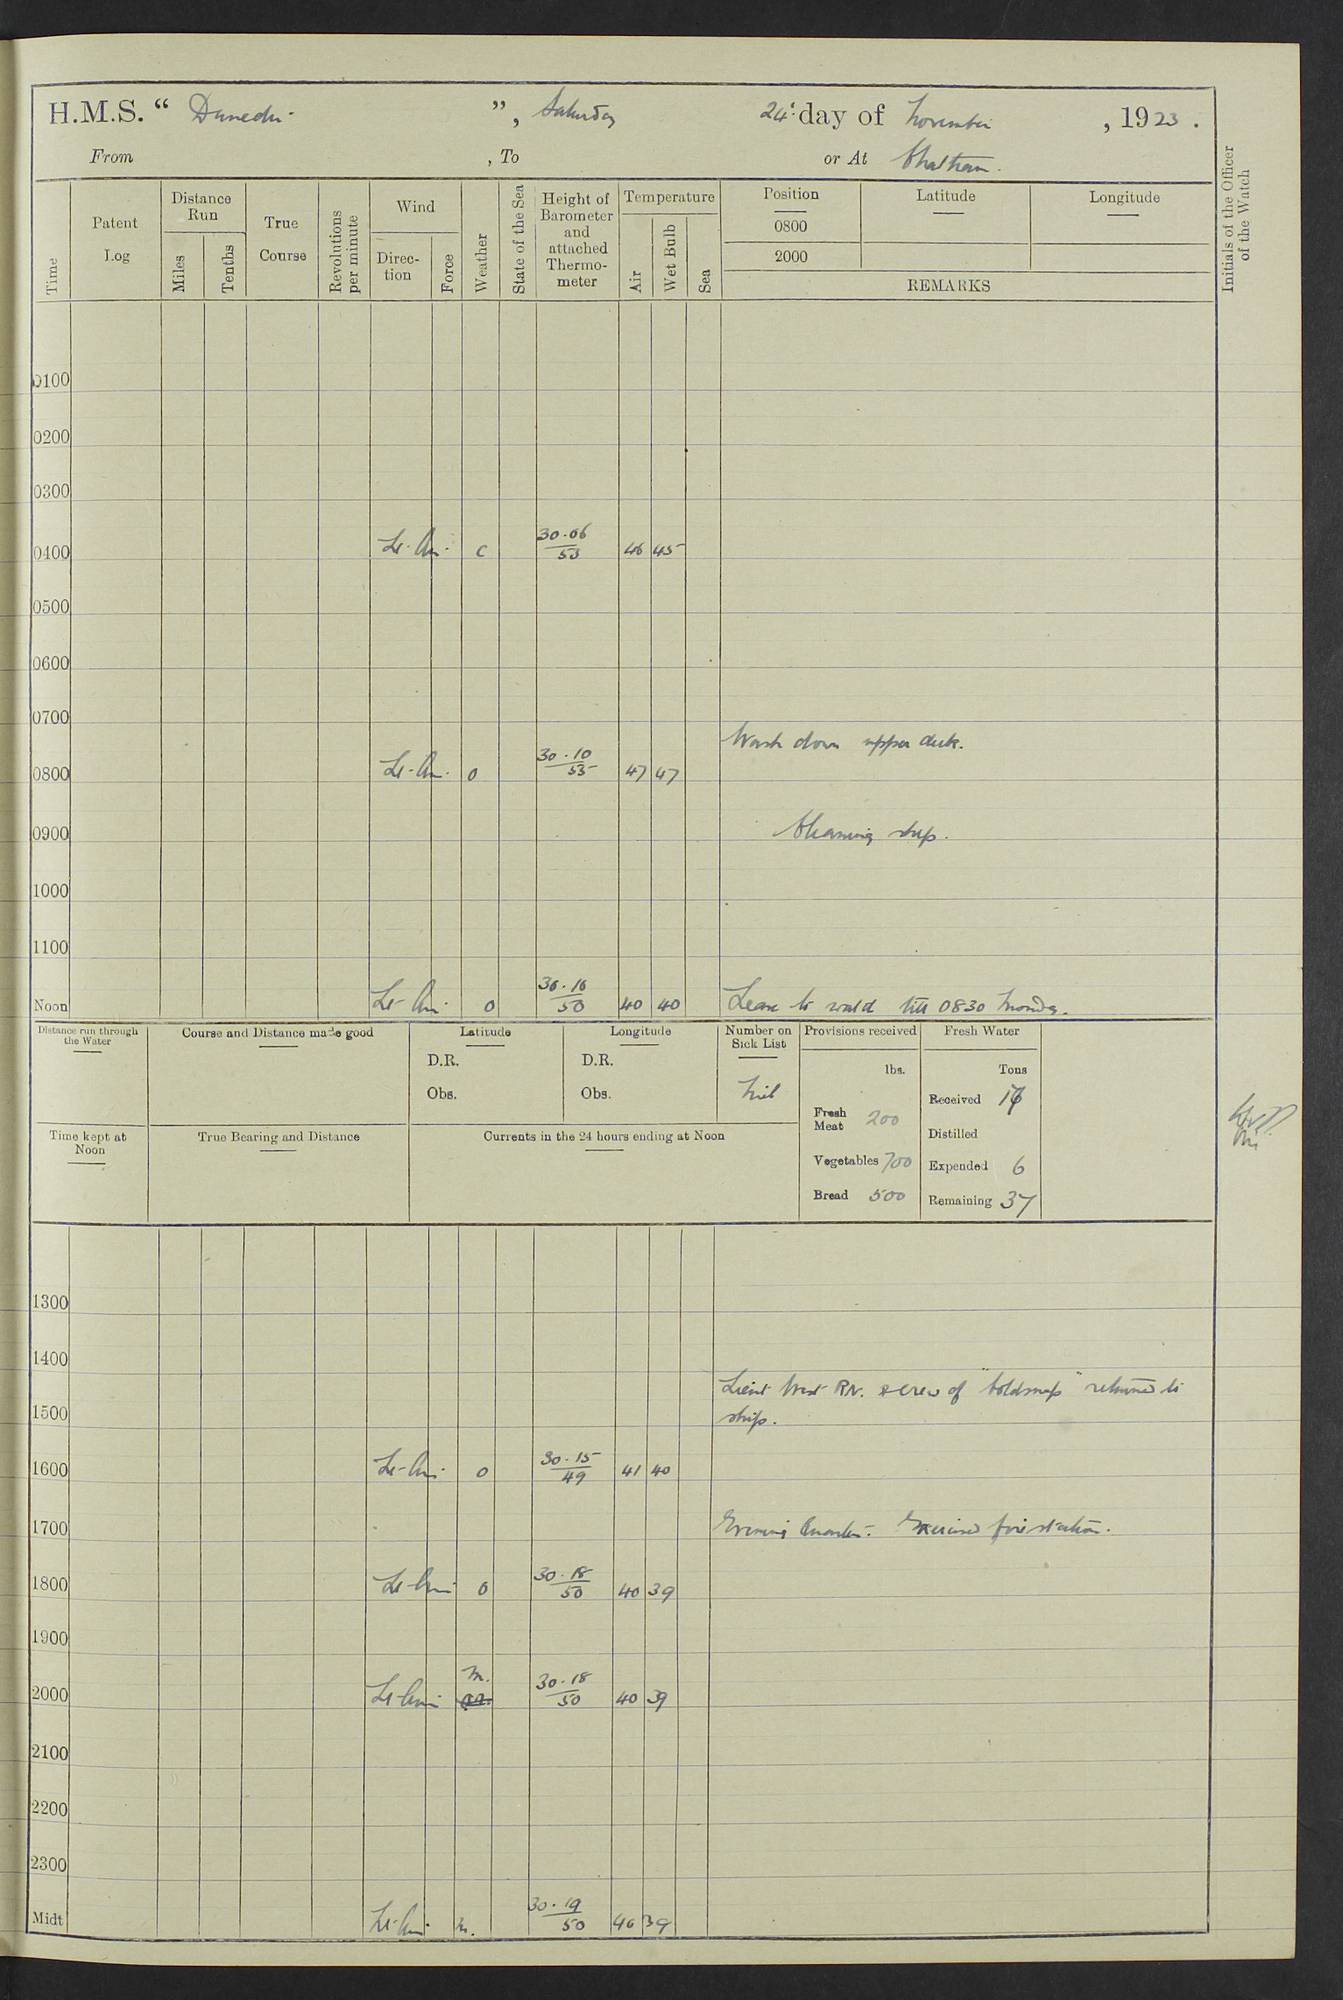 H.M.S. “ Dunedin ”, Saturday 24th day of November, 1923.
From , To or At Chatham.
Initials of the Officer of the Watch
Time
Patent Log
Distance Run
Miles
Tenths
True Course
Revolutions per minute
Wind
Direction
Force
Weather
State of the Sea
Height of Barometer and attached Thermometer
Temperature
Air
Wet Bulb
Sea
Position Latitude Longitude
0800
2000
REMARKS
0100
0200
0300
0400 Lt. Airs. c 30.06/53 46 45
0500
0600
0700
Wash down upper deck.
0800 Lt. Airs. o 30.10/53 47 47
0900 Cleaning ship.
1000
1100
Noon Lt. Airs. o 30.16/50 40 40 Leave to watch till 0830 Monday.
Distance run through the Water
Course and Distance made good
Latitude
D.R.
Obs.
Longitude
D.R.
Obs.
Number on Sick List
Nil
Provisions received
lbs.
Fresh Meat 200
Vegetables 700
Bread 500
Fresh Water
Tons
Received
Distilled
Expended 6
Remaining 37
Time kept at Noon
True Bearing and Distance
Currents in the 24 hours ending at Noon
1300
1400
Lieut West RN. & crew of "Coldsnap" returned to
1500 ship.
1600 Lt. Airs. o 30.15/49 41 40
1700 Evening Quarters. Exercised fire stations.
1800 Lt. Airs o 30.18/50 40 39
1900
2000 Lt. Airs m. 30.18/50 40 39
2100
2200
2300
Midt Lt. Airs. m. 30.19/50 40 39